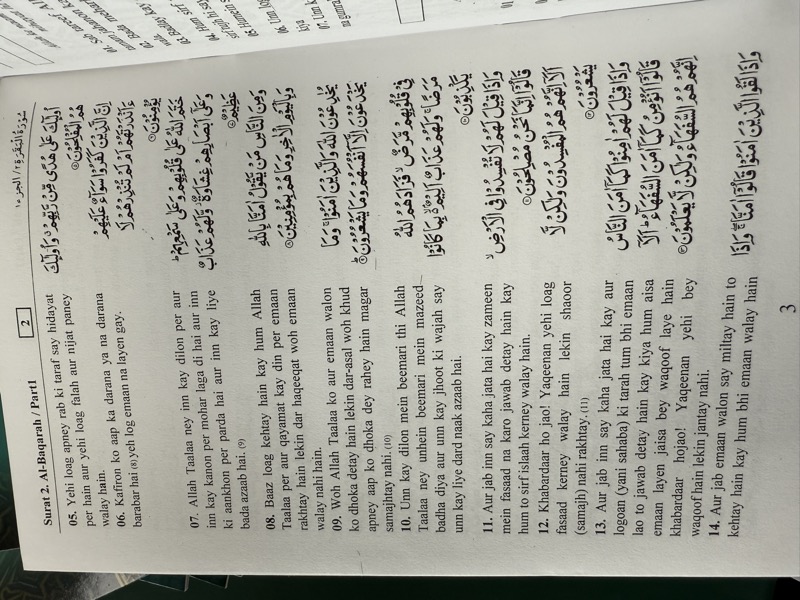 2
Surat 2. Al-Baqarah / Part1
سُوْرَةُ الْبَقَرَة ٢ / الجزء ١
05. Yehi loag apney rab ki taraf say hidayat
per hain aur yehi loag falah aur nijat paney
walay hain.
اُولٰٓئِكَ عَلٰى هُدًى مِّنْ رَّبِّهِمْ وَاُولٰٓئِكَ
هُمُ الْمُفْلِحُوْنَ
06. Kaffron ko aap ka darana ya na darana
barabar hai (8) yeh log emaan na layen gay.
اِنَّ الَّذِيْنَ كَفَرُوْا سَوَآءٌ عَلَيْهِمْ
ءَاَنْذَرْتَهُمْ اَمْ لَمْ تُنْذِرْهُمْ لَا
يُؤْمِنُوْنَ
07. Allah Taalaa ney inn kay dilon per aur
inn kay kanon per mohar laga di hai aur inn
ki aankhon per parda hai aur inn kay liye
bada azaab hai. (9)
خَتَمَ اللّٰهُ عَلٰى قُلُوْبِهِمْ وَعَلٰى سَمْعِهِمْ
وَعَلٰٓى اَبْصَارِهِمْ غِشَاوَةٌ وَّلَهُمْ عَذَابٌ
عَظِيْمٌ
08. Baaz loag kehtay hain kay hum Allah
Taalaa per aur qayamat kay din per emaan
rakhtay hain lekin dar haqeeqat woh emaan
walay nahi hain.
وَمِنَ النَّاسِ مَنْ يَّقُوْلُ اٰمَنَّا بِاللّٰهِ
وَبِالْيَوْمِ الْاٰخِرِ وَمَا هُمْ بِمُؤْمِنِيْنَ
09. Woh Allah Taalaa ko aur emaan walon
ko dhoka detay hain lekin dar-asal woh khud
apney aap ko dhoka dey rahey hain magar
samajhtay nahi. (10)
يُخٰدِعُوْنَ اللّٰهَ وَالَّذِيْنَ اٰمَنُوْا وَمَا
يَخْدَعُوْنَ اِلَّآ اَنْفُسَهُمْ وَمَا يَشْعُرُوْنَ
10. Unn kay dilon mein beemari thi Allah
Taalaa ney unhein beemari mein mazeed
badha diya aur unn kay jhoot ki wajah say
unn kay liye dard naak azaab hai.
فِيْ قُلُوْبِهِمْ مَّرَضٌ فَزَادَهُمُ اللّٰهُ
مَرَضًا وَلَهُمْ عَذَابٌ اَلِيْمٌ بِمَا كَانُوْا
يَكْذِبُوْنَ
11. Aur jab inn say kaha jata hai kay zameen
mein fasaad na karo jawab detay hain kay
hum to sirf islaah kerney walay hain.
وَاِذَا قِيْلَ لَهُمْ لَا تُفْسِدُوْا فِي الْاَرْضِ
قَالُوْٓا اِنَّمَا نَحْنُ مُصْلِحُوْنَ
12. Khabardaar ho jao! Yaqeenan yehi loag
fasaad kerney walay hain lekin shaoor
(samajh) nahi rakhtay. (11)
اَلَآ اِنَّهُمْ هُمُ الْمُفْسِدُوْنَ وَلٰكِنْ لَّا
يَشْعُرُوْنَ
13. Aur jab inn say kaha jata hai kay aur
logoan (yani sahaba) ki tarah tum bhi emaan
lao to jawab detay hain kay kiya hum aisa
emaan layen jaisa bey waqoof laye hain
khabardaar hojao! Yaqeenan yehi bey
waqoof hain lekin jantay nahi.
وَاِذَا قِيْلَ لَهُمْ اٰمِنُوْا كَمَآ اٰمَنَ النَّاسُ
قَالُوْٓا اَنُؤْمِنُ كَمَآ اٰمَنَ السُّفَهَآءُ اَلَآ
اِنَّهُمْ هُمُ السُّفَهَآءُ وَلٰكِنْ لَّا يَعْلَمُوْنَ
14. Aur jab emaan walon say miltay hain to
kehtay hain kay hum bhi emaan walay hain
وَاِذَا لَقُوا الَّذِيْنَ اٰمَنُوْا قَالُوْٓا اٰمَنَّا وَاِذَا
3